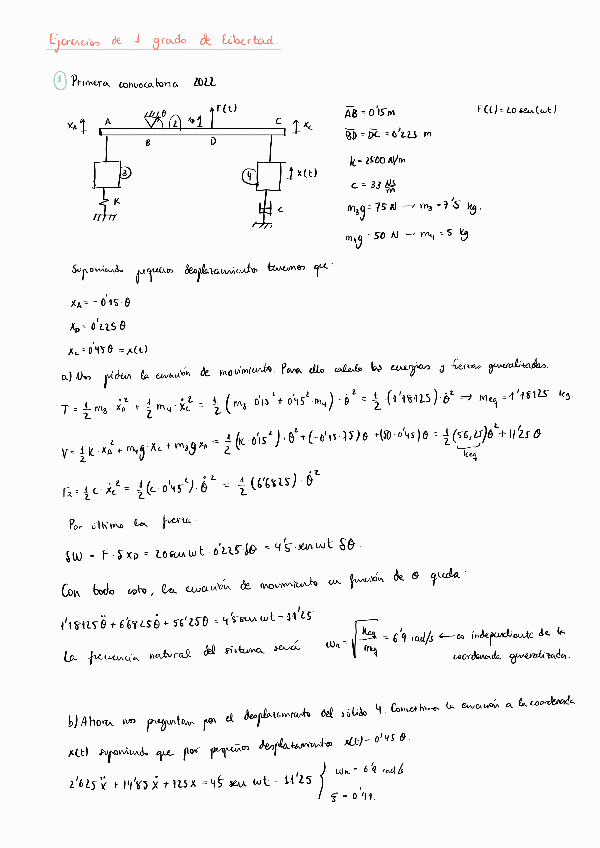 Ejercicios de 1 grado de libertad.
1 Primera convocatoria 2022
F(t)
XA A θ 2 1 C XC
B D
3 4 X(t)
K C
AB = 0'15 m F(t) = 20 sen(ωt)
BD = DC = 0'225 m
K = 2500 N/m
C = 33 Ns/m
m3g = 75 N → m3 = 7'5 kg.
m4g = 50 N → m4 = 5 kg
Suponiendo pequeños desplazamientos tenemos que:
XA = -0'15·θ
XD = 0'225 θ
XC = 0'45 θ = X(t)
a) Nos piden la ecuación de movimiento. Para ello calculo las energías y fuerzas generalizadas.
T = 1/2 m3 ẋA² + 1/2 m4·ẋC² = 1/2 (m3 0'15² + 0'45²·m4)·θ̇² = 1/2 (1'18125)·θ̇² → Meq = 1'18125 kg.
V = 1/2 K·XA² + m4g·XC + m3g XA = 1/2 (K·0'15²)·θ² + (-0'15·75)θ + (50·0'45)θ = 1/2 (56,25)θ² + 11'25 θ
Keq
R = 1/2 C·ẋC² = 1/2 (C·0'45²)·θ̇² = 1/2 (6'6825)·θ̇²
Por último la fuerza.
δW = F·δXD = 20 sen ωt·0'225 δθ = 4'5·sen ωt δθ.
Con todo esto, la ecuación de movimiento en función de θ queda:
1'18125 θ̈ + 6'6825 θ̇ + 56'25 θ = 4'5 sen ωt - 11'25
La frecuencia natural del sistema será ωn = √(Keq/meq) = 6'9 rad/s ← es independiente de la
coordenada generalizada.
b) Ahora nos preguntan por el desplazamiento del sólido 4. Convertimos la ecuación a la coordenada
X(t) suponiendo que por pequeños desplazamientos X(t) = 0'45 θ.
2'625 ẍ + 14'85 ẋ + 125 x = 4'5 sen ωt - 11'25 } ωn = 6'9 rad/s
ξ = 0'41.